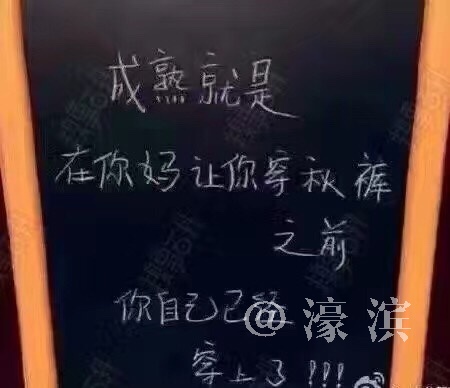 成熟就是
在你妈让你穿秋裤
之前
你自己已经
穿上了!!!
@濠滨